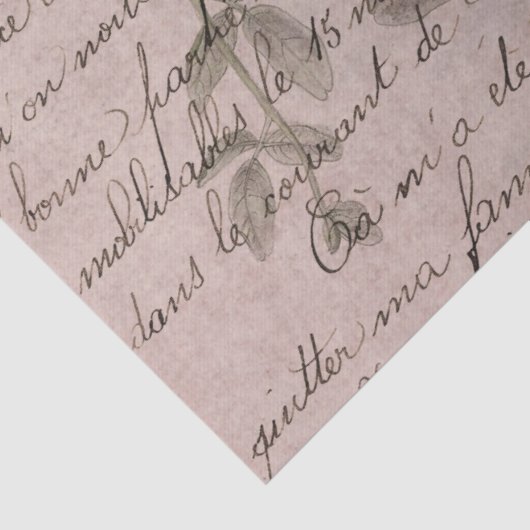 ce
u'on nou
bonne partie le 15 m
mobilisables
dans le courant de
Cà m'a été
quitter ma fam